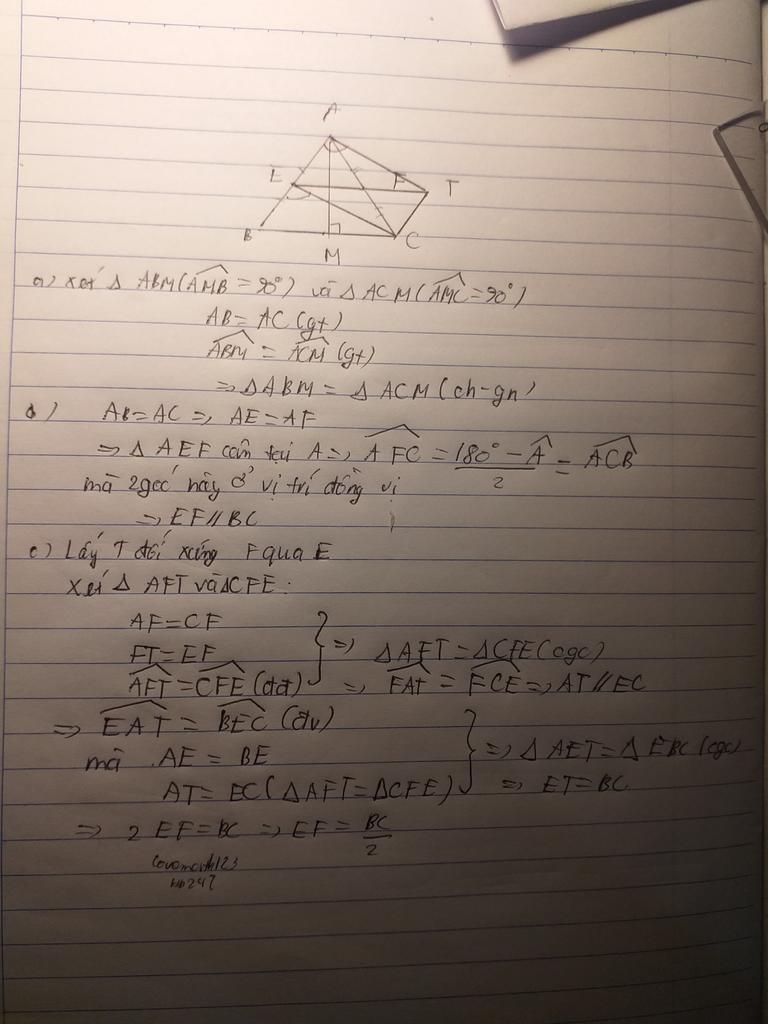 A
E
F
T
B
M
C
a) Xét Δ ABM (\widehat{AMB} = 90°) và Δ ACM (\widehat{AMC} = 90°)
AB = AC (gt)
\widehat{ABM} = \widehat{ACM} (gt)
⇒ Δ ABM = Δ ACM (ch-gn)
b) AB = AC ⇒ AE = AF
⇒ Δ AEF cân tại A ⇒ \widehat{AFC} = \frac{180° - \widehat{A}}{2} = \widehat{ACB}
mà 2 góc này ở vị trí đồng vị
⇒ EF // BC
c) Lấy T đối xứng F qua E
Xét Δ AFT và ΔCFE :
AF = CF
FT = EF
\widehat{AFT} = \widehat{CFE} (đđ) } ⇒ ΔAFT = ΔCFE (cgc)
⇒ \widehat{FAT} = \widehat{FCE} ⇒ AT // EC
⇒ \widehat{EAT} = \widehat{BEC} (đv)
mà AE = BE
AT = EC (ΔAFT = ΔCFE) } ⇒ Δ AET = Δ EBC (cgc)
⇒ ET = BC
⇒ 2 EF = BC ⇒ EF = \frac{BC}{2}